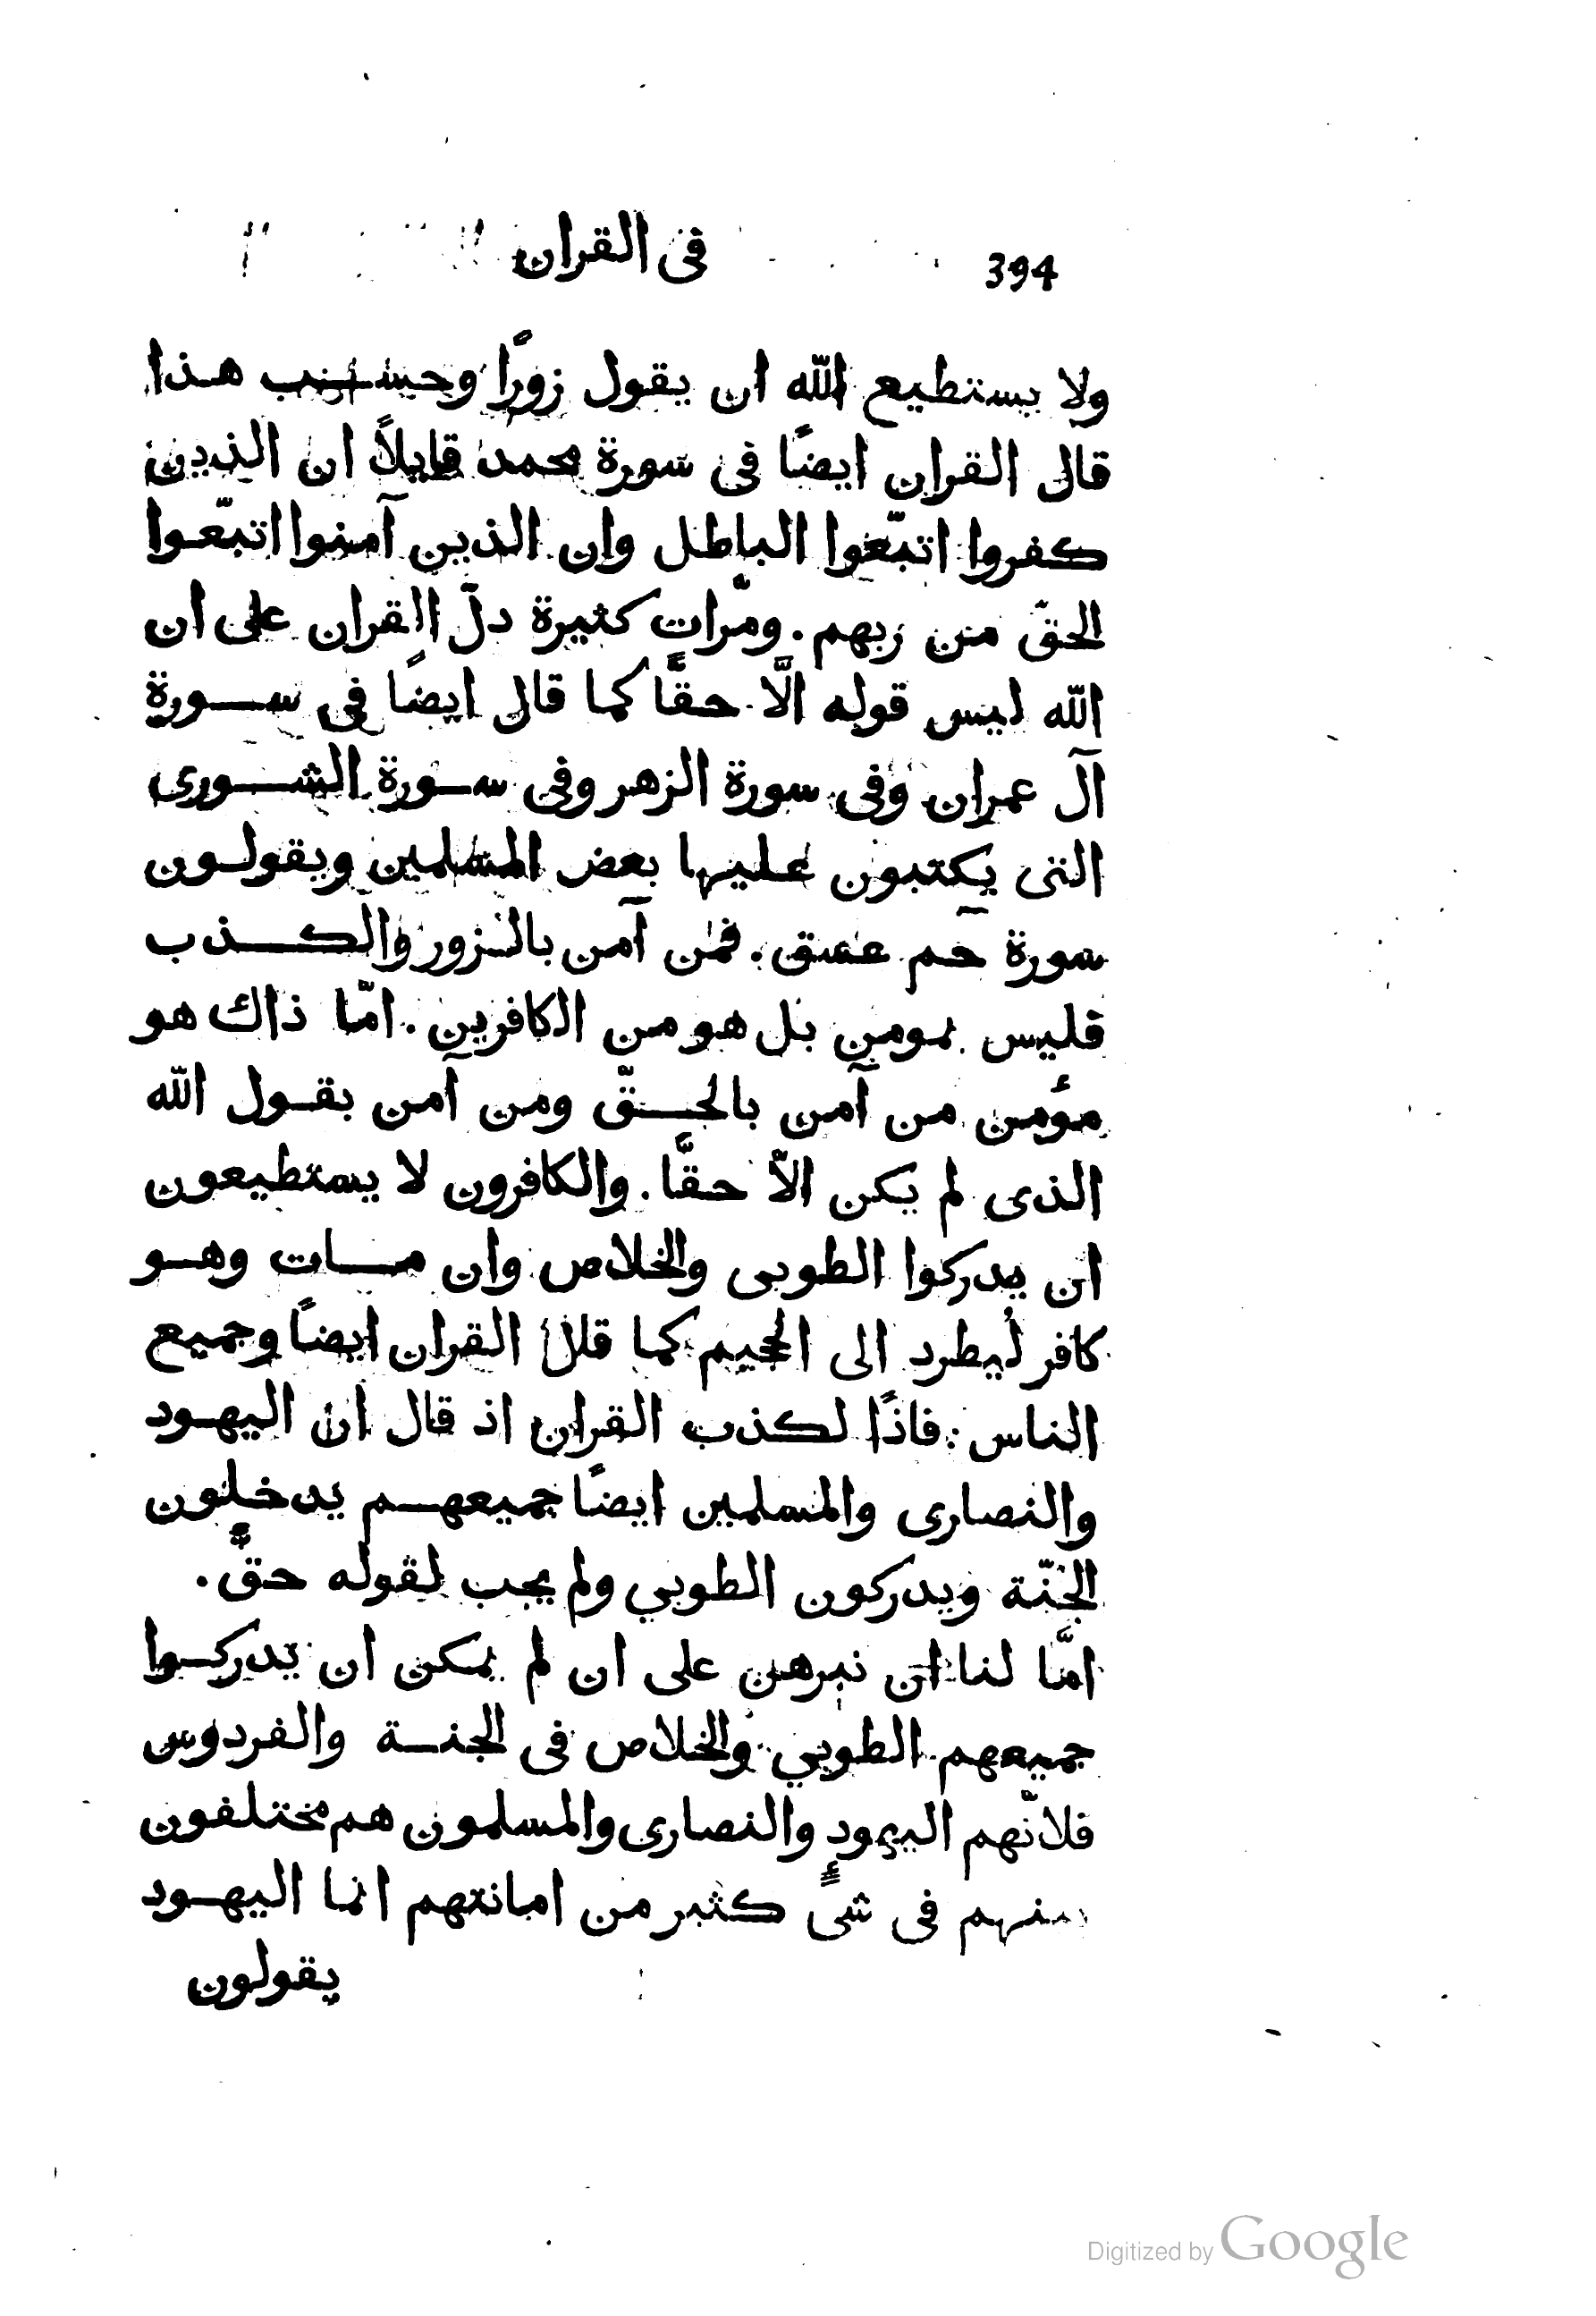 394 فى القران
ولا يستطيع الله ان يقول زورًا وحسب هذا
قال القران ايضًا فى سورة محمد قايلاً ان الذين
كفروا اتبّعوا الباطل وان الذين آمنوا اتبّعوا
الحقّ من ربهم. ومّرات كثيرة دلّ القران على ان
الله ليس قوله الَّا حقًّا كما قال ايضًا فى سورة
آل عمران وفى سورة الزهر وفى سورة الشورى
التى يكتبون عليها بعض المسلمين ويقولون
سورة حم عسق. فمن آمن بالزور والكذب
فليس بمومن بل هو من الكافرين. امّا ذاك هو
مؤمن من آمن بالحقّ ومن آمن بقول الله
الذى لم يكن الاّ حقًّا. والكافرون لا يستطيعون
ان يدركوا الطوبى والخلاص وان مات وهو
كافر لُيطرد الى الجحيم كما قال القران ايضًا وجميع
الناس. فاذًا لكذب القران اذ قال ان اليهود
والنصارى والمسلمين ايضًا جميعهم يدخلون
الجنّة ويدركون الطوبي ولم يجب لقوله حقٌّ.
امَّا لنا ان نبرهن على ان لم يمكن ان يدركوا
جميعهم الطوبي والخلاص فى الجنة والفردوس
فلانّهم اليهود والنصارى والمسلمون هم مختلفون
منهم فى شىءٍ كثير من امانتهم انما اليهود
يقولون
Digitized by Google